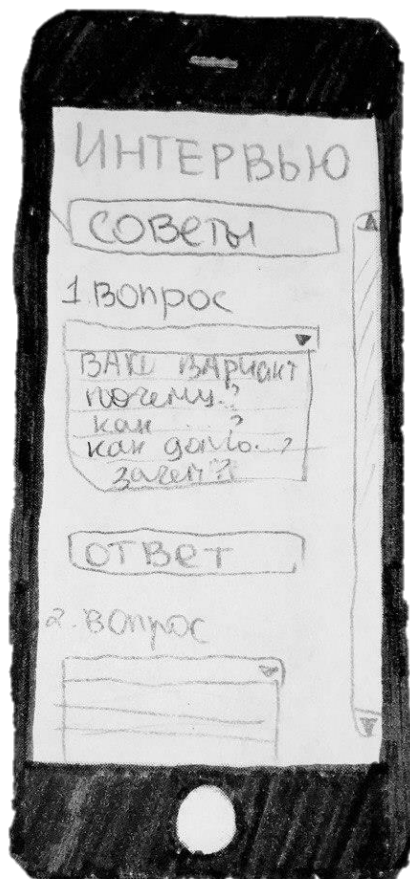 ИНТЕРВЬЮ
СОВЕТЫ
1 ВОПРОС
ВАШ ВАРИАНТ
почему..?
как ... ?
как долго..?
зачем?
ОТВЕТ
2. ВОПРОС